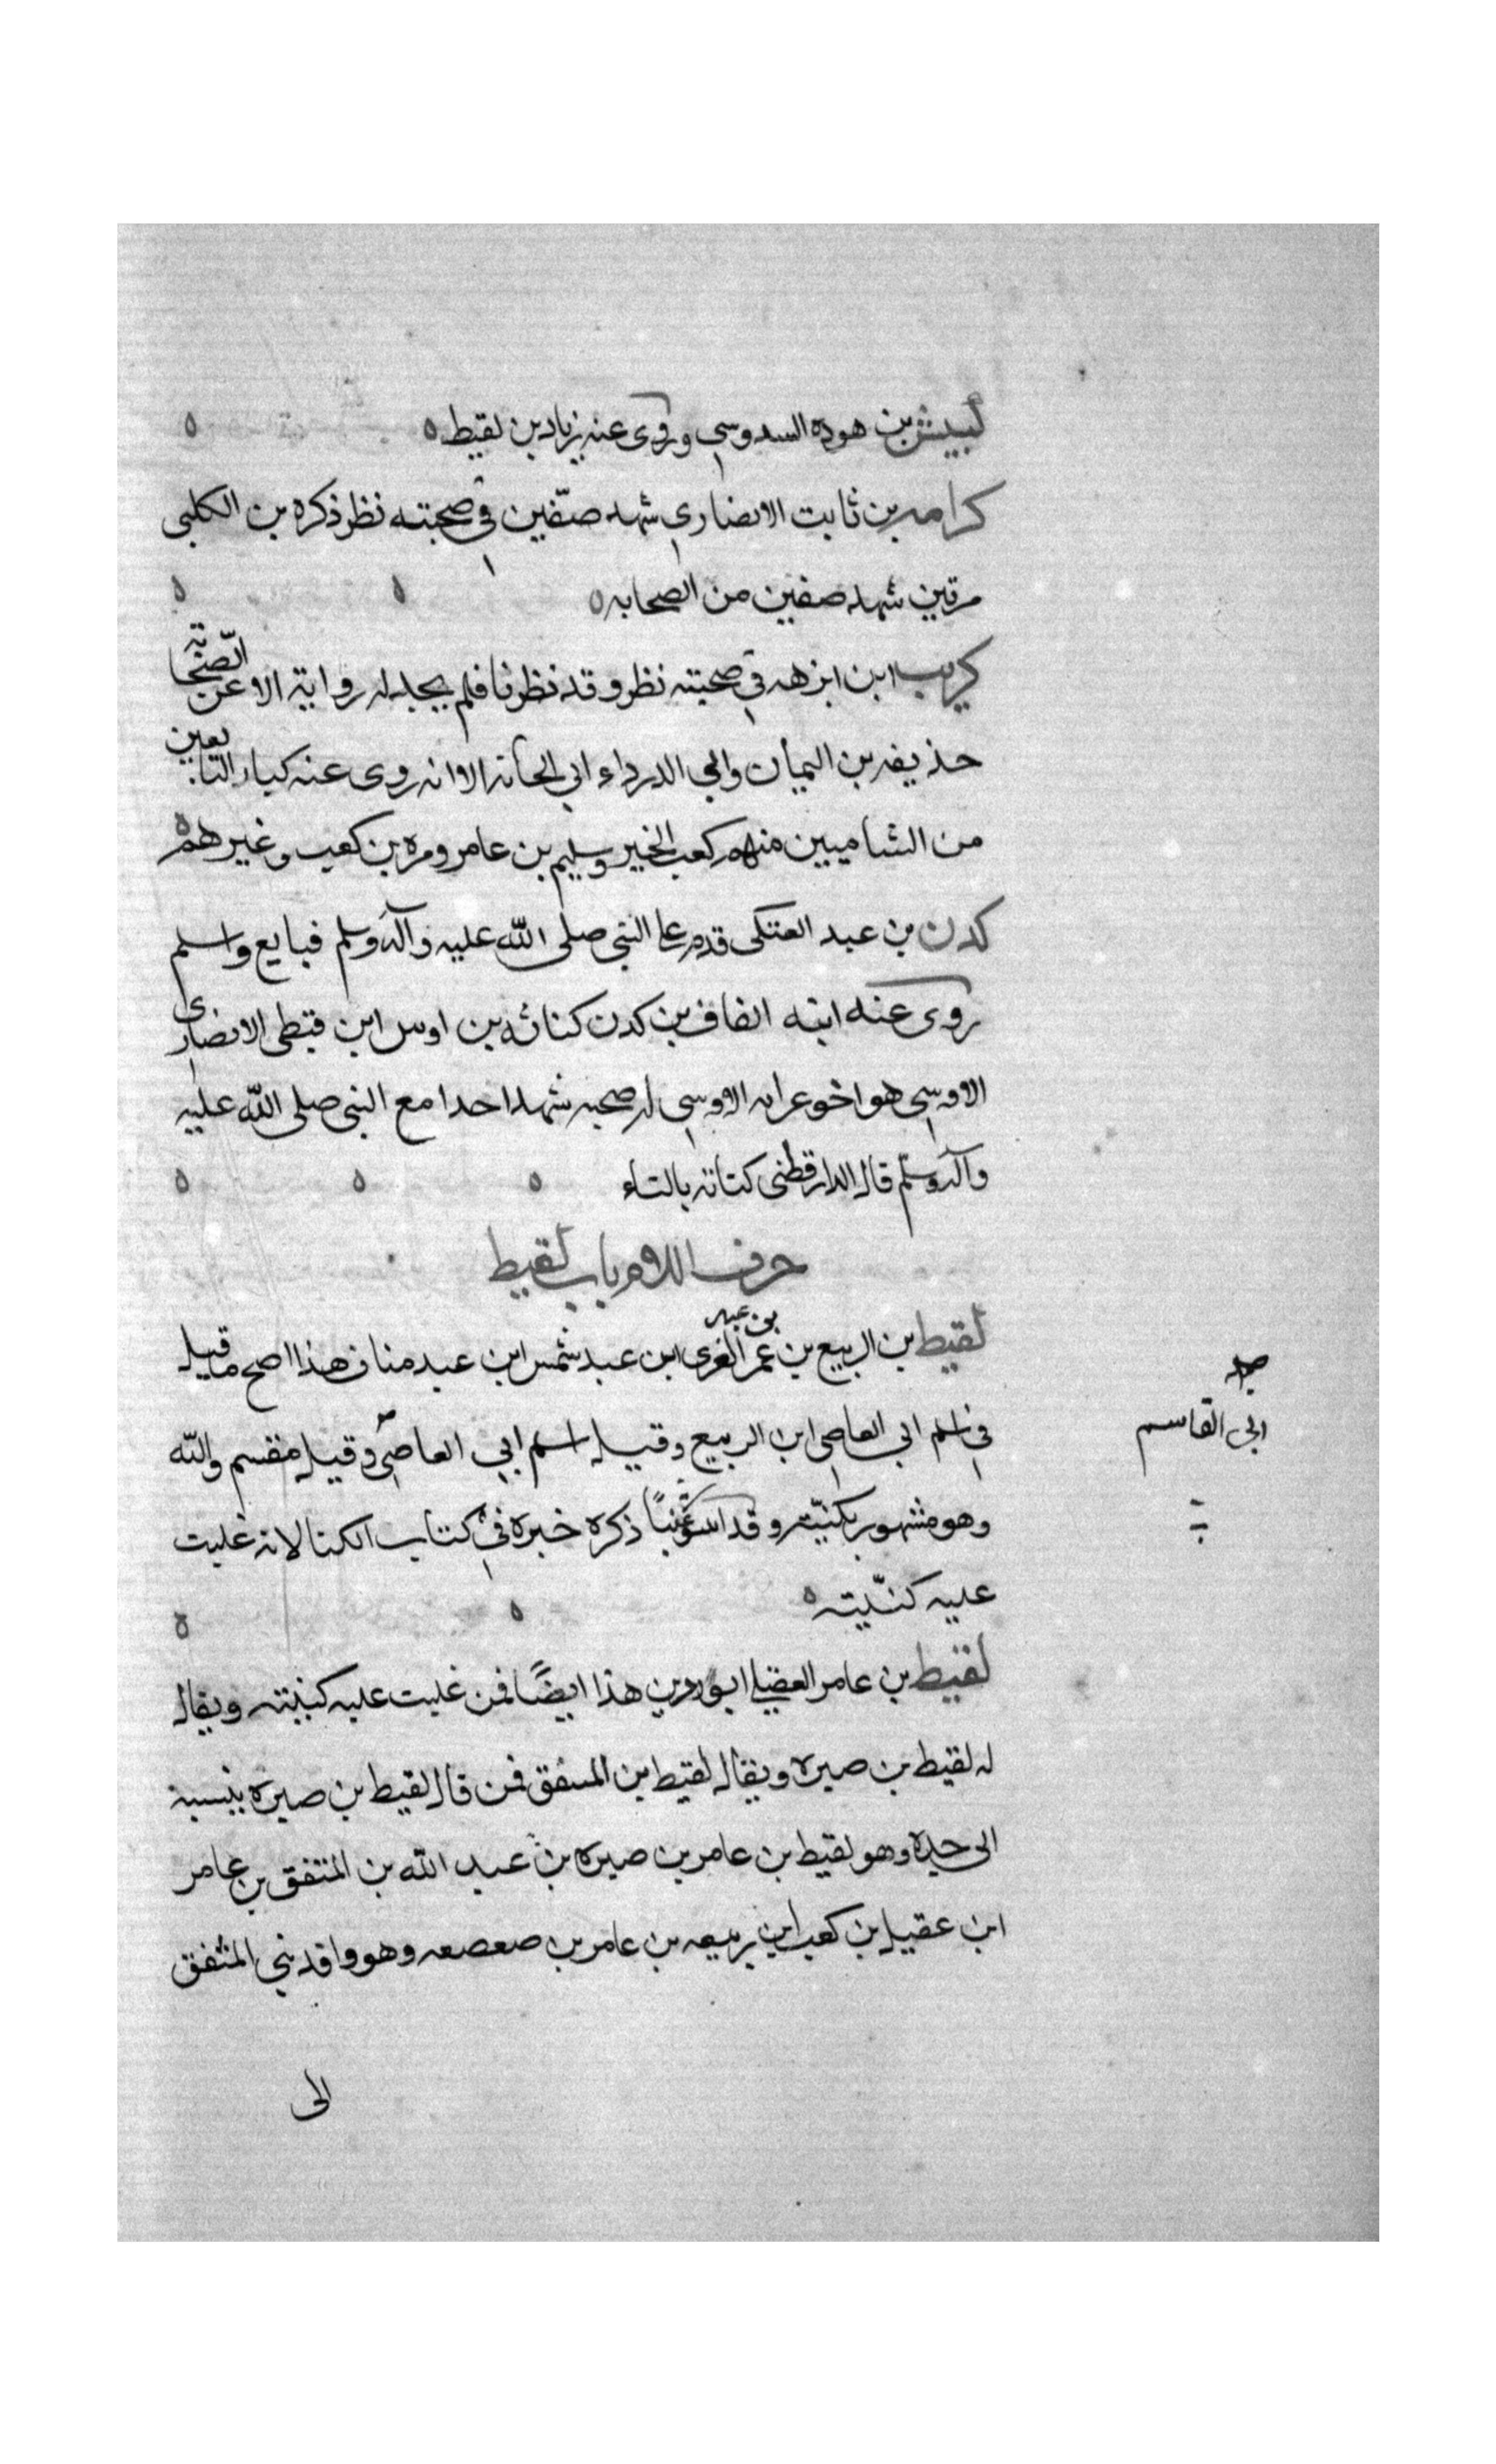 كبيش بن هوده السدوسي وروى عنه زياد بن لقيط
كرامه بن ثابت الانصاري شهد صفّين في صحبته نظر ذكره بن الكلبي
مرتين شهد صفين من الصحابه
كريب ابن ابزهه في صحبته نظر وقد نظرنا فلم يجد له رواية الا عن الصّحابة
حذيفه بن اليمان وابي الدرداء الا انه روى عنه كبار التابعين
من الشاميين منهم كعب الخير وسليم بن عامر ومره بن كعب وغيرهم
كدن بن عبد العتكى قدم على النبي صلى الله عليه وآله وسلم فبايع واسلم
روى عنه ابنه الفاف بن كدن كنانه بن اوس ابن قيظى الانصاري
الاوسي هو اخو عرابه الاوسي له صحبه شهد احدا مع النبي صلى الله عليه
وآله وسلّم قال الدارقطنى كتانه بالتاء
حرف اللام باب لقيط
لقيط بن الربيع بن عبد العزى ابن عبد شمس ابن عبد مناف هذا اصح ما قيل
في اسلم ابي العاصي ابن الربيع وقيل اسلم ابي العاصي وقيل مقسم والله
ابي القاسم
وهو مشهور بكنيّته وقد ذكره خبره في كتاب الكنا لانه غلبت
عليه كنّيته
لقيط بن عامر العقيلي ابو رزين هذا ايضًا فمن غلبت عليه كنيته ويقال
له لقيط بن صبره ويقال لقيط بن المنتفق فمن قال لقيط بن صبره ينسبه
الى جده وهو لقيط بن عامر بن صبره بن عبد الله بن المنتفق بن عامر
ابن عقيل بن كعب ابن ربيعه بن عامر بن صعصعه وهو وافد بني المنتفق
الى